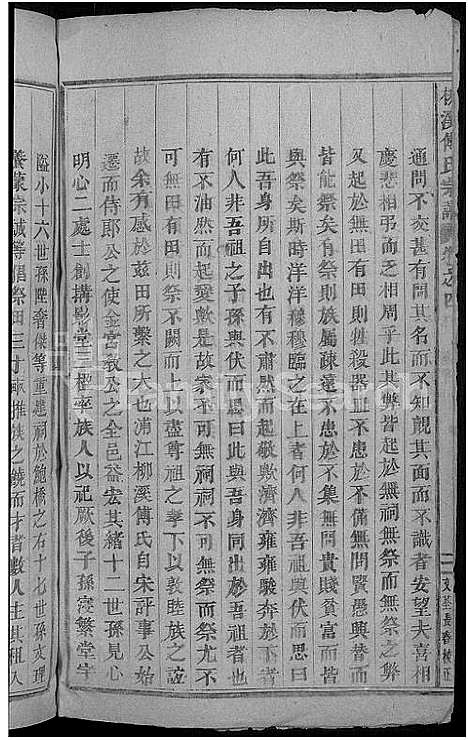 柳溪傅氏宗譜卷之四
通問不交甚有問其名而不知覿其面而不識者安望夫喜相
慶悲相弔而乏相周乎此其弊皆起於無祠無祭而無祭之弊
又起於無田有田則牲殺器皿不患於不備無問賢愚與不肖
皆能祭矣有祭則族屬疎遠不患於不集無問貧富與尊卑皆
與祭矣斯時洋洋穆穆臨之在上者何人非吾祖與吾宗歟思
此吾身所自出也有不肅然而起敬歟濟濟雍雍駿奔於下者
何人非吾祖之子孫與吾族歟而思曰此與吾身同出於吾祖也
有不油然而起愛歟是故家不可無祠祠不可無祭而祭尤不
可無田有田則祭不闕而上以盡尊祖之孝下以敦睦族之誼
故余有感於茲田所繫之大也浦江柳溪傅氏自宋評事公始
遷而侍郎公之使金宣敎公之全邑益宏其緒十二世孫見心
明心二處士創搆影堂三楹率族人以祀厥後子孫寖繁堂宇
隘小十六世孫陞奢傑等重建祠於鮑橋之右十七世孫文理
養蒙宗誠等倡祭田三十畝推族之饒而才者數人主其租入